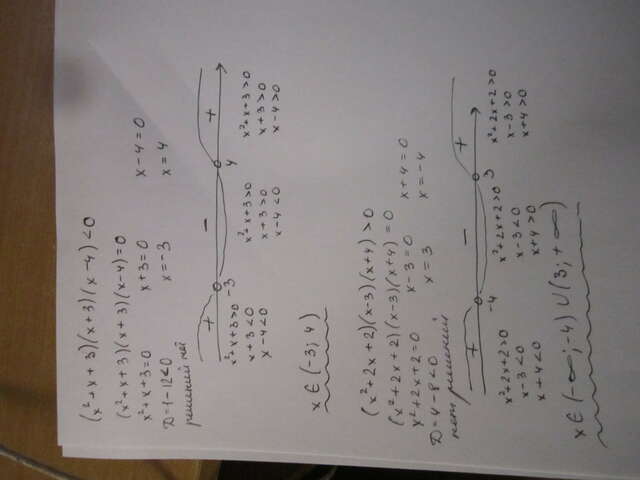 (x²+x+3)(x+3)(x-4)<0
(x²+x+3)(x+3)(x-4)=0
x²+x+3=0 x+3=0 x-4=0
D=1-12<0 x=-3 x=4
решений нет
+ − +
-3 4
x²+x+3>0 x²+x+3>0 x²+x+3>0
x+3<0 x+3>0 x+3>0
x-4<0 x-4<0 x-4>0
x∈(-3; 4)
(x²+2x+2)(x-3)(x+4)>0
(x²+2x+2)(x-3)(x+4)=0
x²+2x+2=0 x-3=0 x+4=0
D=4-8<0 x=3 x=-4
нет решений
+ − +
-4 3
x²+2x+2>0 x²+2x+2>0 x²+2x+2>0
x-3<0 x-3<0 x-3>0
x+4<0 x+4>0 x+4>0
x∈(-∞;-4)∪(3;+∞)